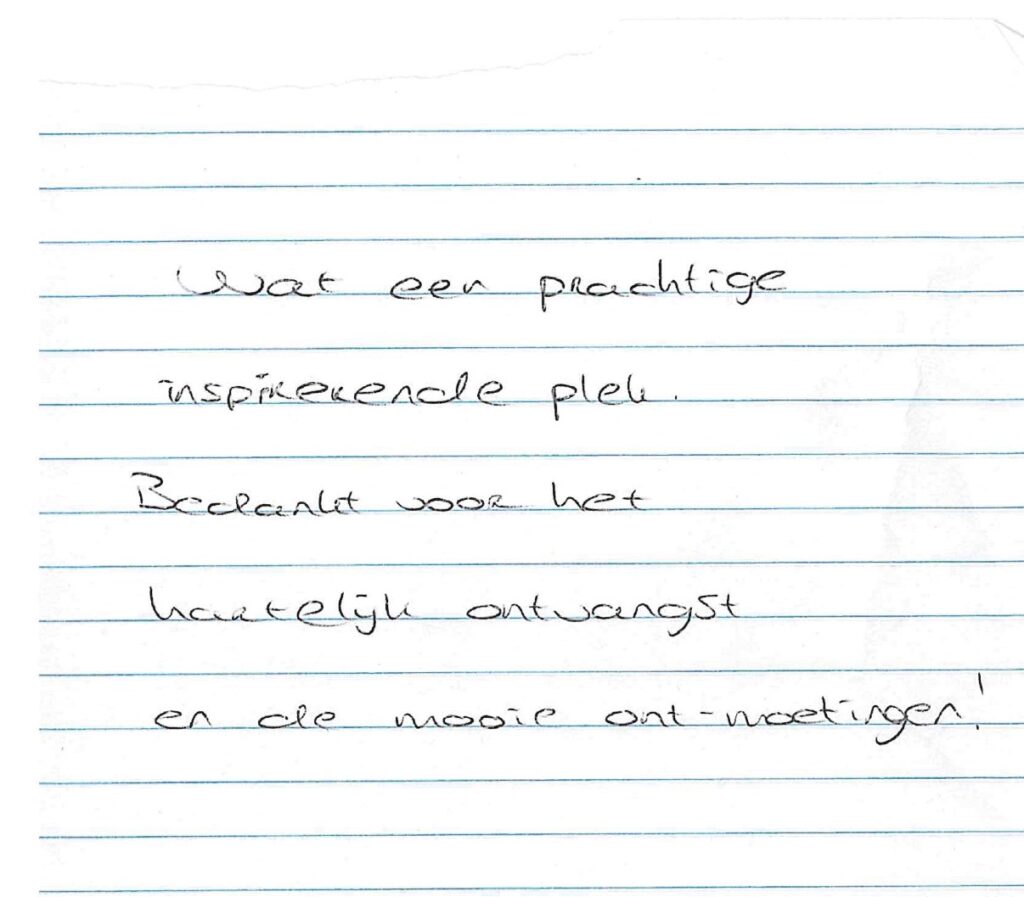 Wat een prachtige
inspirerende plek.
Bedankt voor het
hartelijk ontvangst
en de mooie ont-moetingen!